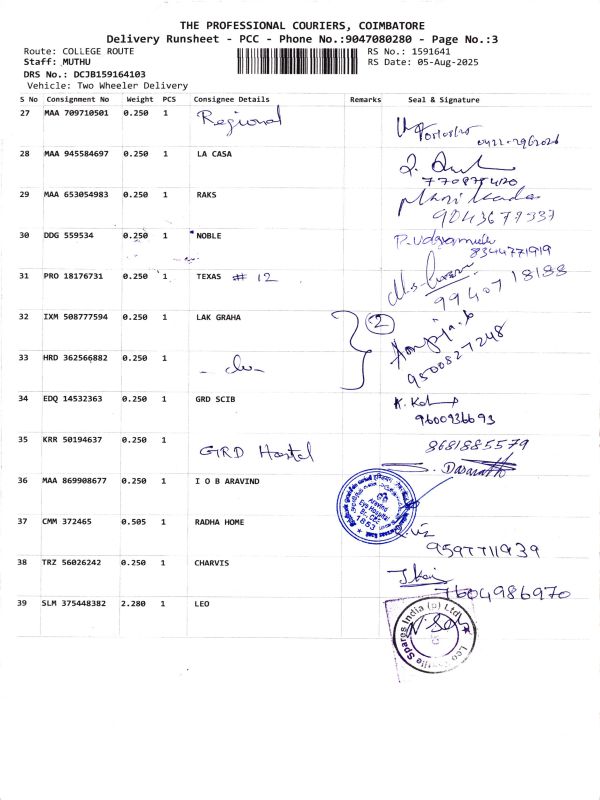 THE PROFESSIONAL COURIERS, COIMBATORE
Delivery Runsheet - PCC - Phone No.:9047080280 - Page No.:3
Route: COLLEGE ROUTE RS No.: 1591641
Staff: MUTHU RS Date: 05-Aug-2025
DRS No.: DCJB159164103
Vehicle: Two Wheeler Delivery
S No Consignment No Weight PCS Consignee Details Remarks Seal & Signature
27 MAA 709710501 0.250 1 Regional
28 MAA 945584697 0.250 1 LA CASA
770875420
29 MAA 653054983 0.250 1 RAKS
9043677337
30 DDG 559534 0.250 1 NOBLE
8344771919
31 PRO 18176731 0.250 1 TEXAS # 12
9940718188
32 IXM 508777594 0.250 1 LAK GRAHA 2
9500827248
33 HRD 362566882 0.250 1
34 EDQ 14532363 0.250 1 GRD SCIB
9600936693
35 KRR 50194637 0.250 1 GRD Hostel 8681885579
36 MAA 869908677 0.250 1 I O B ARAVIND
Aravind
Eye Hospital
1853
37 CMM 372465 0.505 1 RADHA HOME
9597711939
38 TRZ 56026242 0.250 1 CHARVIS
7604986970
39 SLM 375448382 2.280 1 LEO
Spares India (p) Ltd